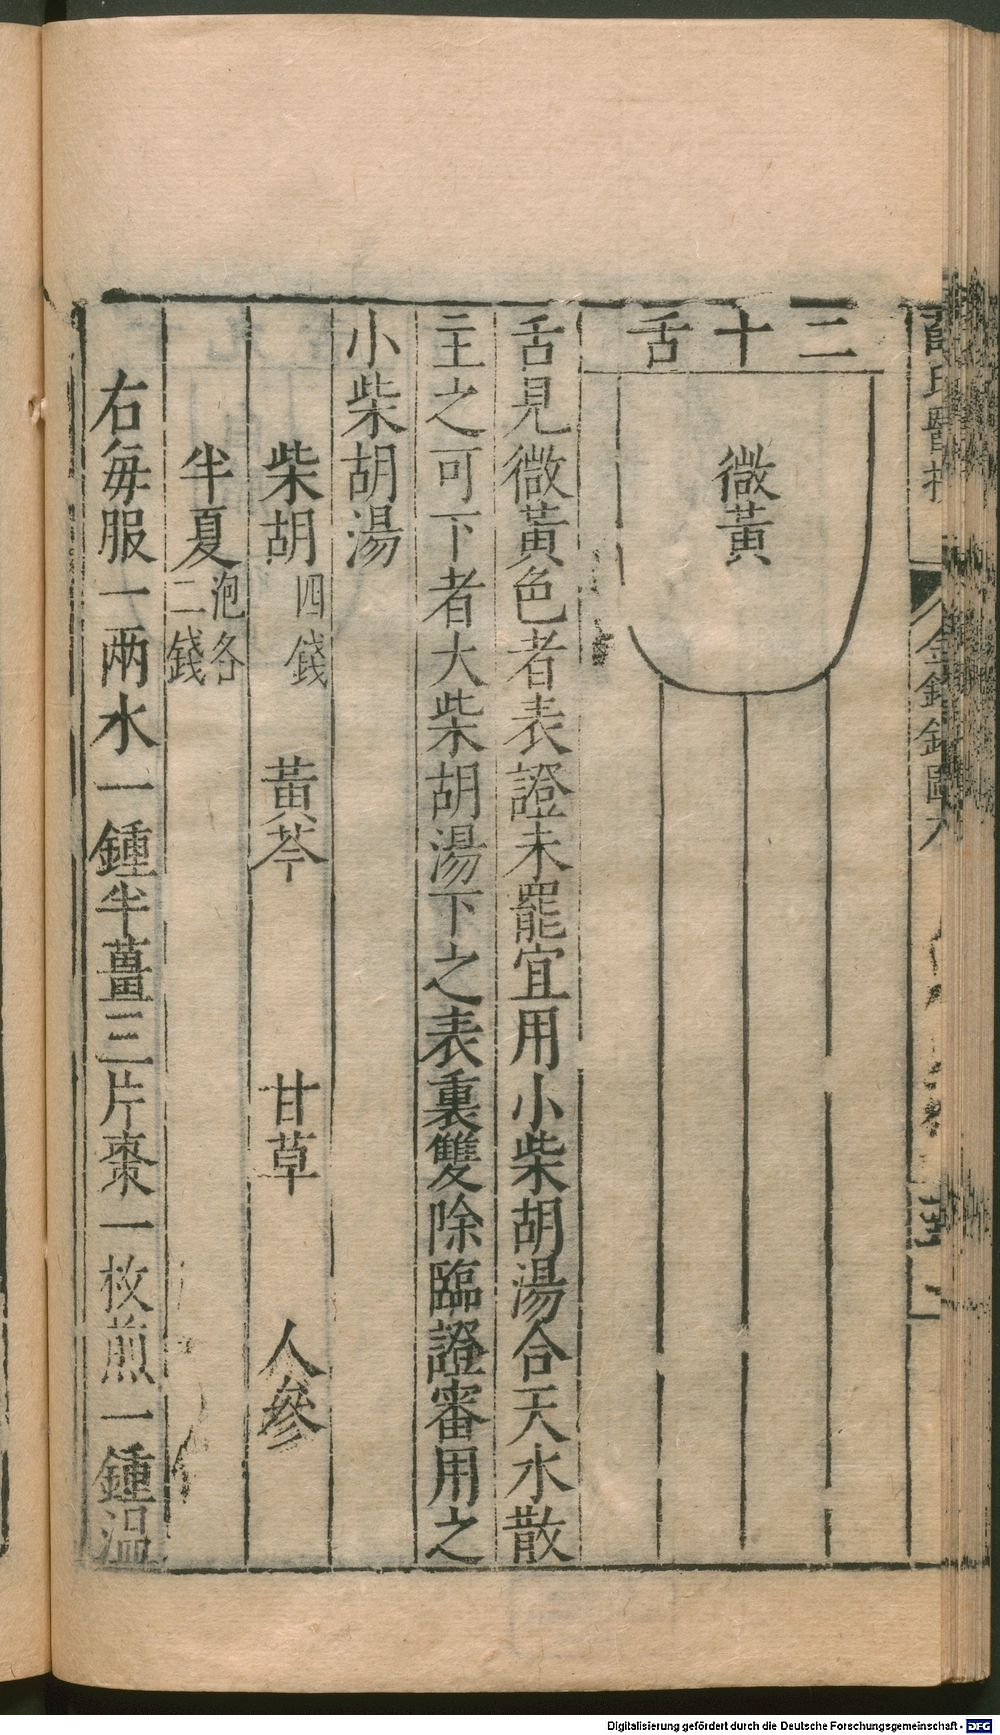 二十舌
微黃
舌見微黃色者表證未罷宜用小柴胡湯合天水散
主之可下者大柴胡湯下之表裏雙除臨證審用之
小柴胡湯
柴胡四錢 黃芩 甘草 人參
半夏泡各二錢
右每服一兩水一鍾半薑三片棗一枚煎一鍾溫
Digitalisierung gefördert durch die Deutsche Forschungsgemeinschaft - DFG